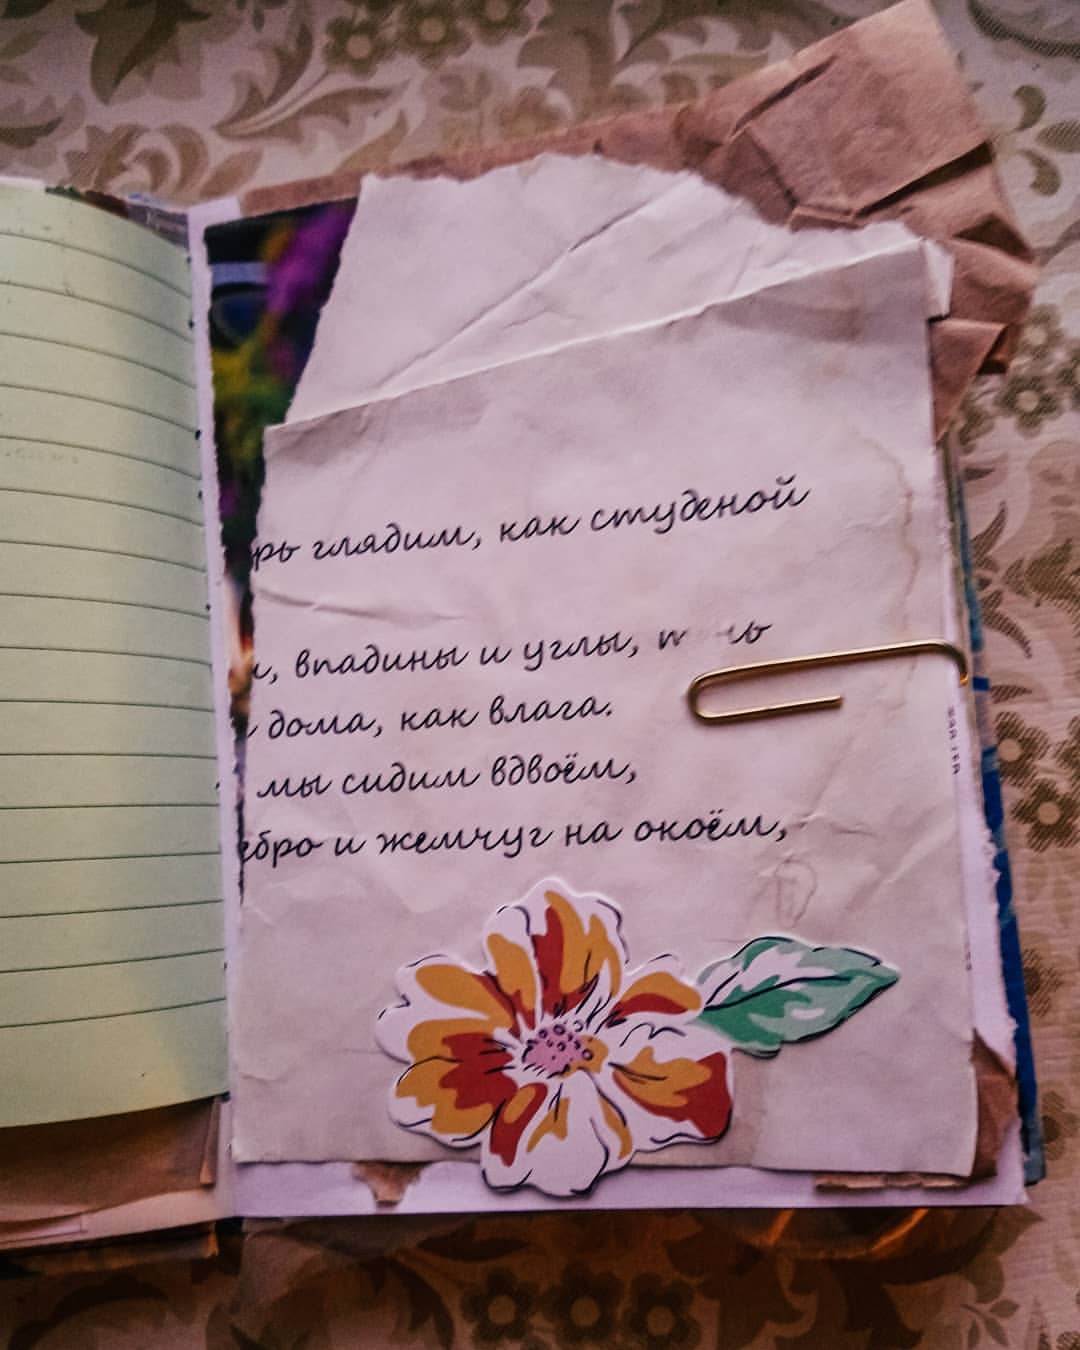 рь глядим, как студеной
, впадины и углы,
дома, как влага.
мы сидим вдвоём,
ебро и жемчуг на окоём,